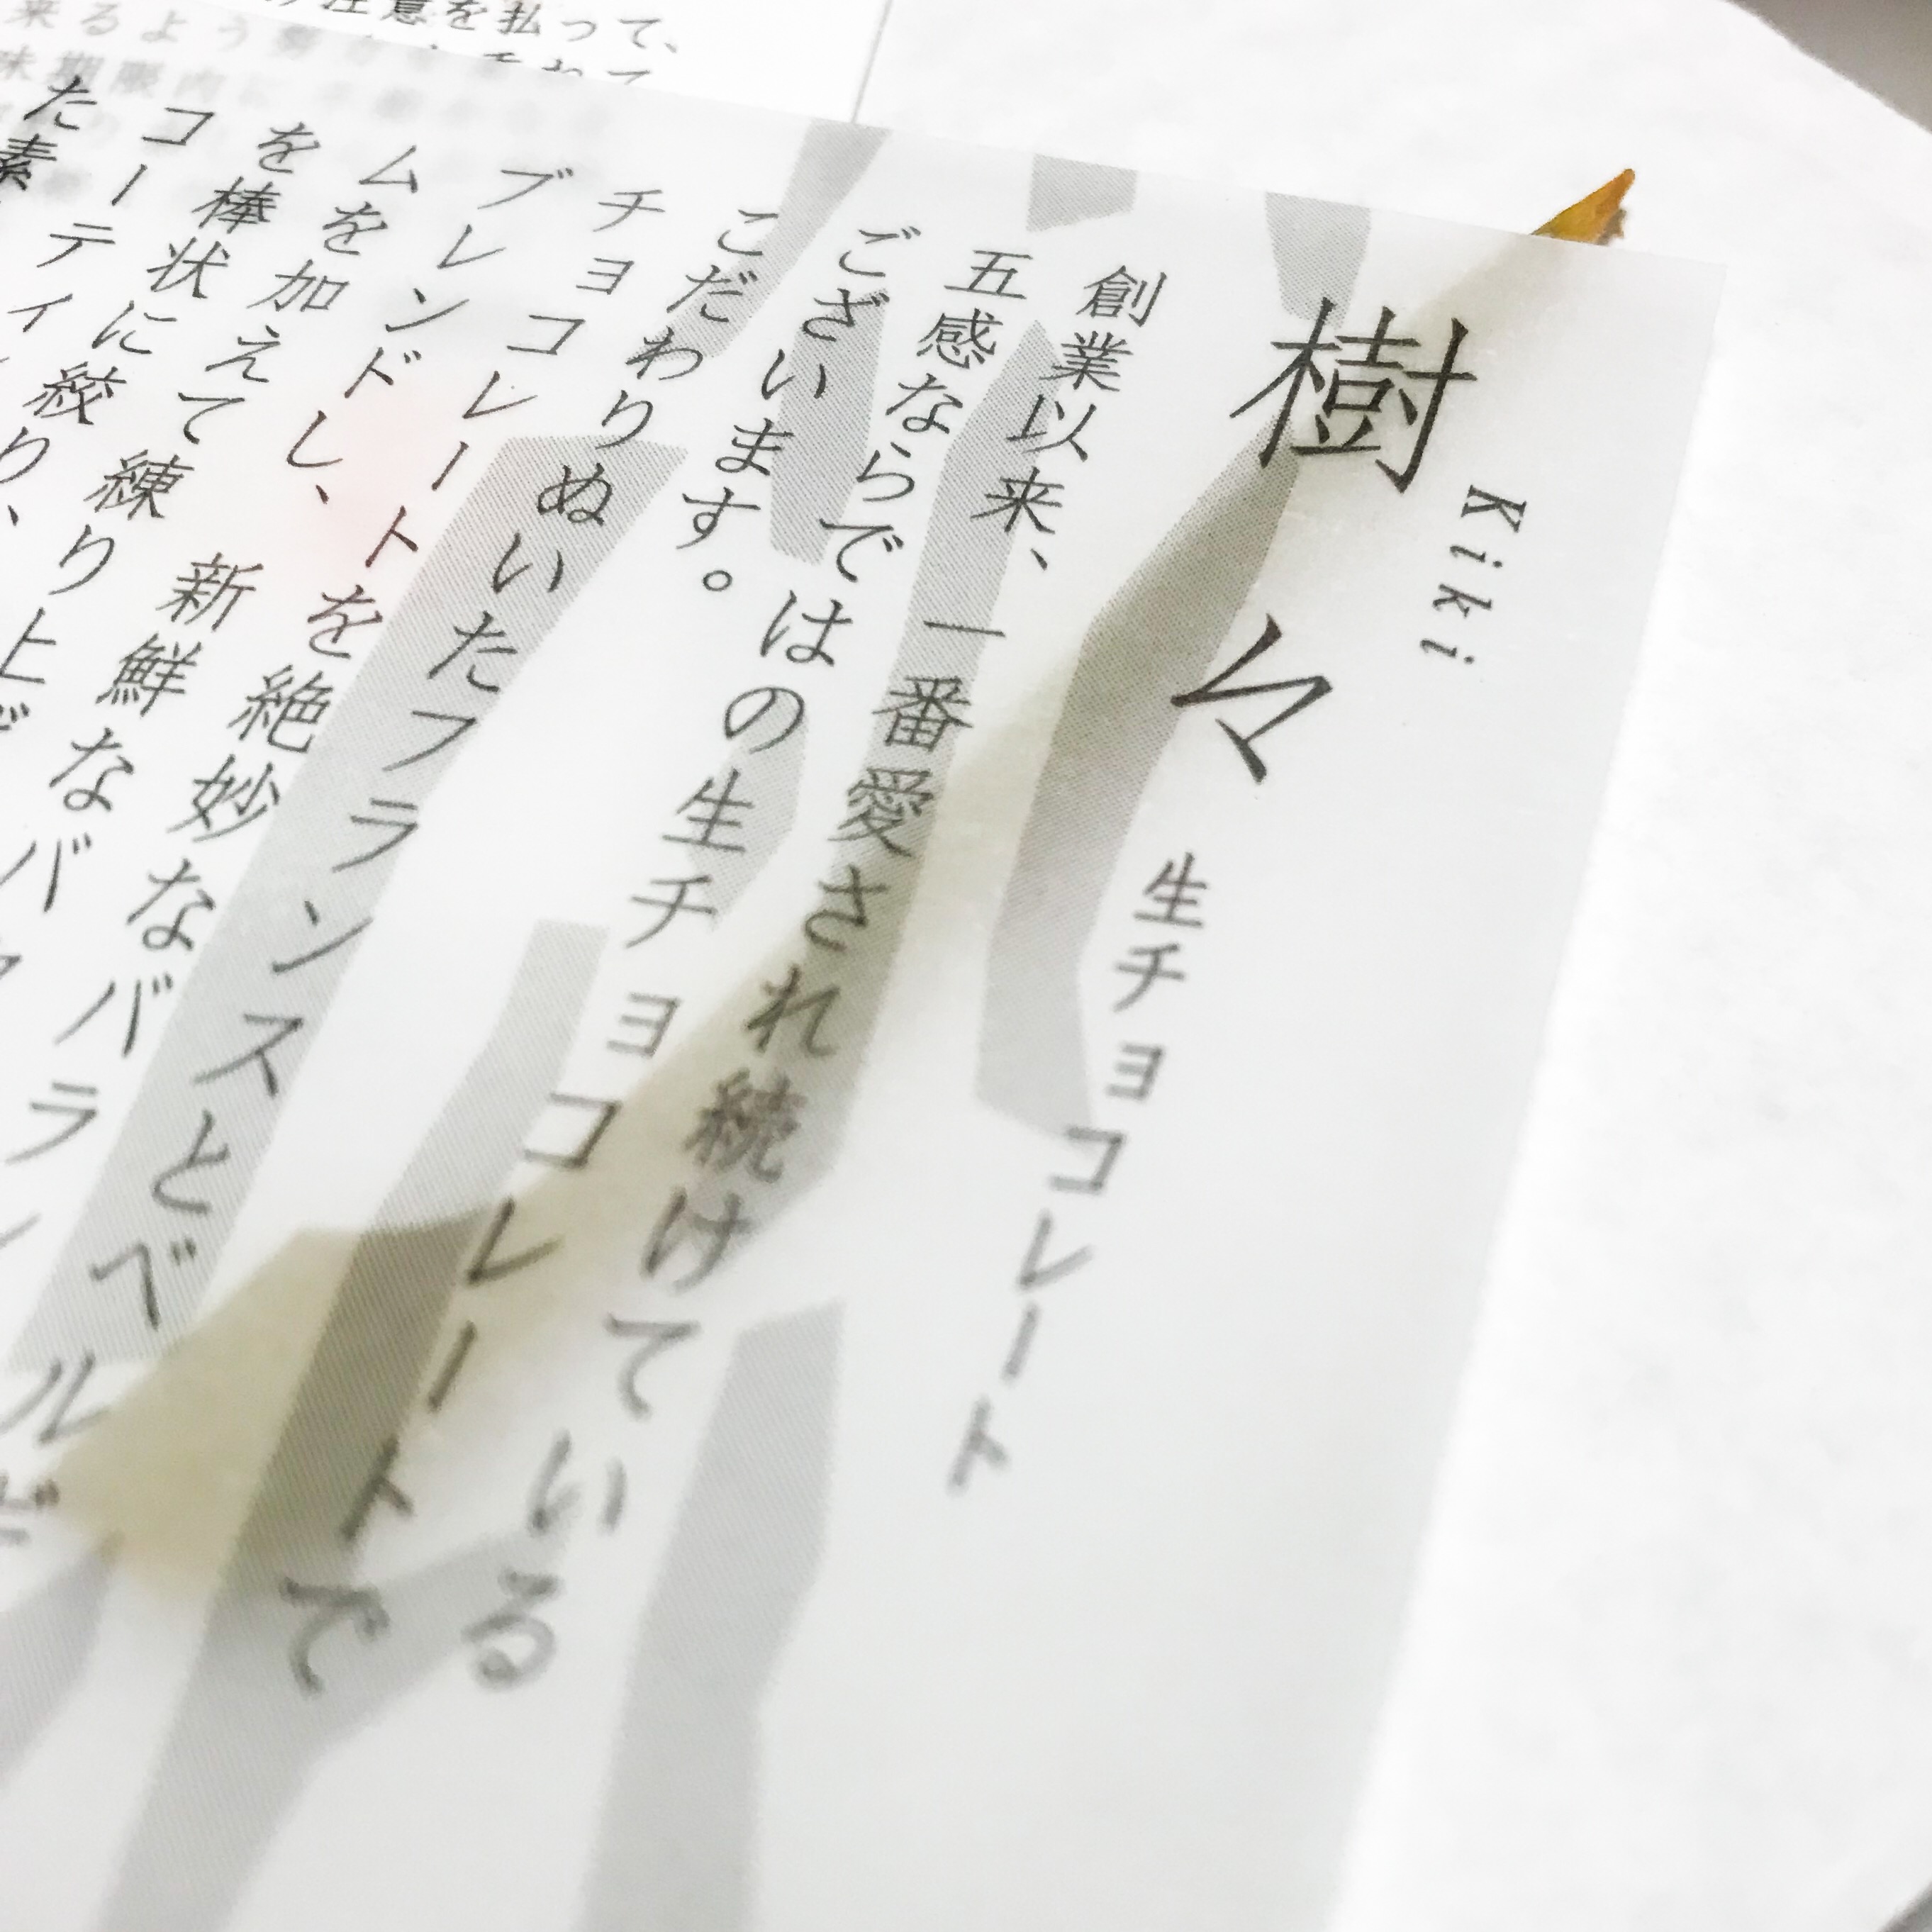 樹々 Kiki 生チョコレート
創業以来、一番愛され続けている
五感ならではの生チョコレートで
ございます。
こだわりぬいたフランスとベル
チョコレートを絶妙なバラン
ブレンドし、新鮮なバ
ムを加えて練り上
を棒状に絞り、
コーティ
た素
注意を払って、
来るよう
味期限内に